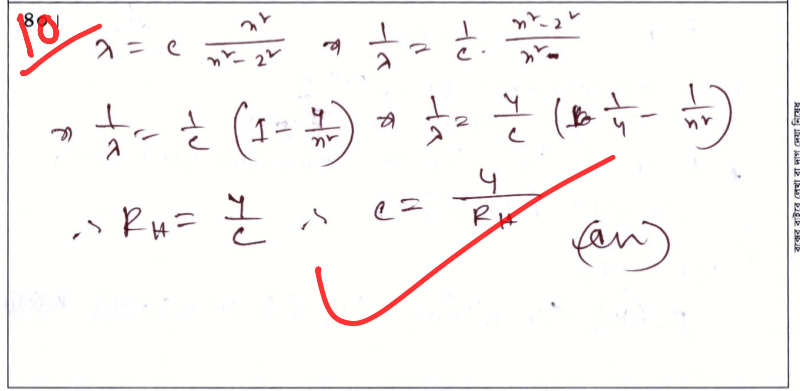 10
80।
λ = c n²/(n² - 2²) ⇒ 1/λ = 1/c · (n² - 2²)/n²
⇒ 1/λ = 1/c (1 - 4/n²) ⇒ 1/λ = 4/c (1/4 - 1/n²)
∴ R_H = 4/c ∴ c = 4/R_H (an)
বক্সের বাইরে লেখা বা দাগ দেয়া নিষেধ